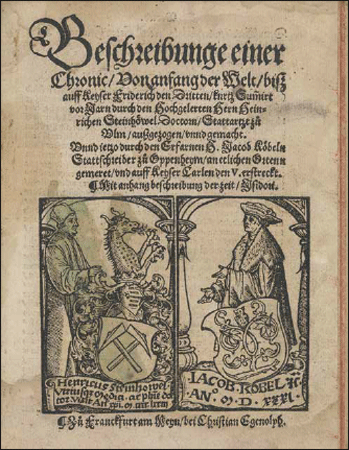 Beschreibunge einer
Chronic/ Von anfang der Welt/ bisz
auff Keyser Friderich den Dritten/ kurtz Sum̃irt
vor Jarn durch den Hochgelerten Hern Hein-
richen Steinhöwel Doctorn/ Stattartzt zů
Vlm/ auszgezogen/ vnnd gemacht.
Vnnd ietzo durch den Erfarnen H. Jacob Köbeln
Stattschreiber zů Oppenheym/ an etlichen Ortenn
gemeret/ vnd auff Keyser Carlen den V. erstreckt.
¶ Mit anhang beschreibung der zeit/ Isidori.
Henricus Steinhowel
Vtriusqꝫ Medic.
IACOB. KÖBEL
AN͂. M. D. XXXI.
¶ Zů Franckfurt am Meyn/ bei Christian Egenolph.